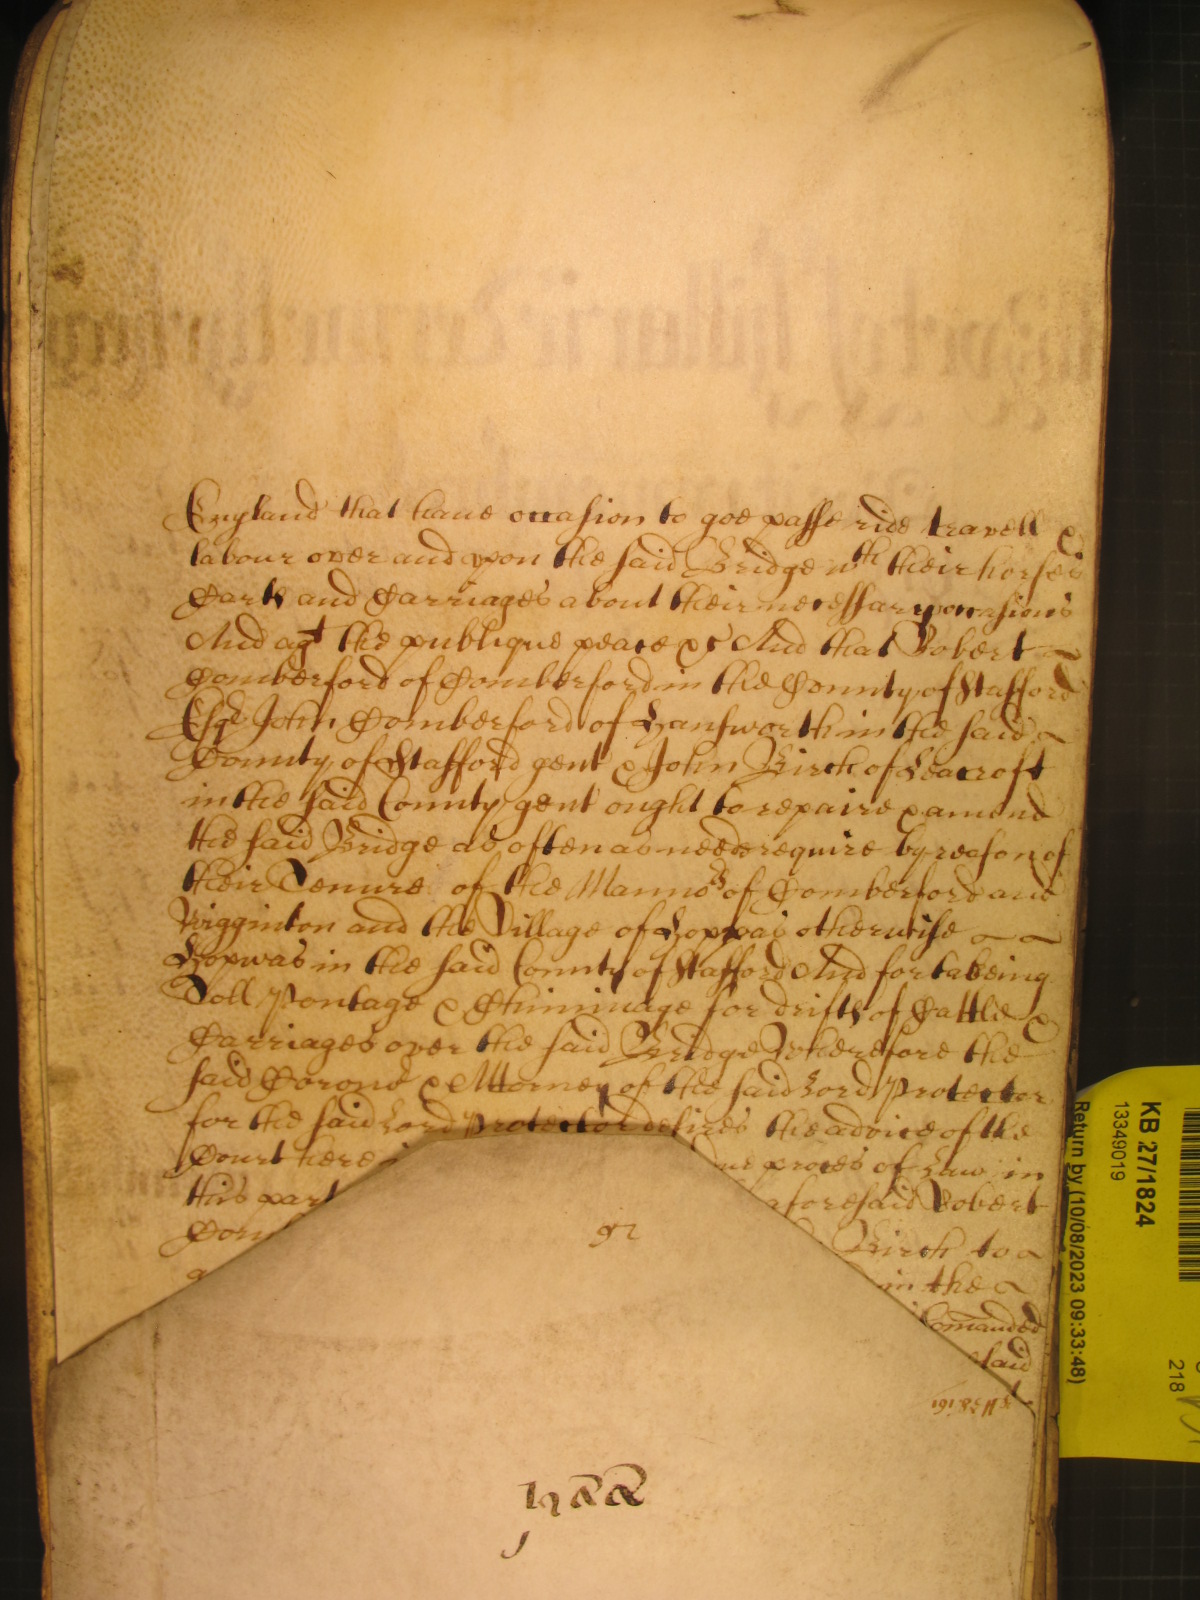 England that haue occasion to goe passe ride travell &
labour over and vpon the said Bridge wth their horses
Carts and Carriages about their necessary occasions
And agt the publique peace &c And that Robert
Comberford of Comberford in the County of Stafford
Esqr John Comberford of Hansworth in the said
County of Stafford gent & John Birch of Leacroft
in the said County gent ought to repaire & amend
the said Bridge as often as neede require by reason of
their Tenure of the Mannors of Comberford and
Wigginton and the Village of Hoppas otherwise
Hopwas in the said County of Stafford And for takeing
Toll Pontage & Chiminage for drifts of Cattle &
Carriages over the said Bridge Wherefore the
said Coronr & Attorney of the said Lord Protector
for the said Lord Protector desires the advice of the
Court here proces of Law in
this part aforesaid Robert
Birch to
in the
Comanded
said
KB 27/1824
13349019
Return by (10/08/2023 09:33:48)
218